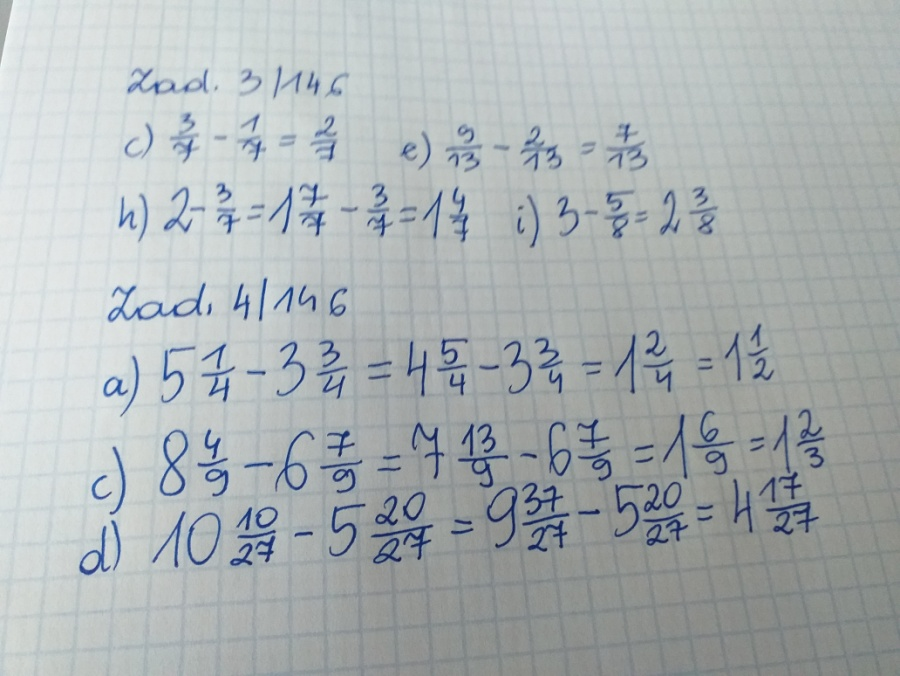 Zad. 3/146
c) 3/7 - 1/7 = 2/7 e) 9/13 - 2/13 = 7/13
h) 2 - 3/7 = 1 7/7 - 3/7 = 1 4/7 i) 3 - 5/8 = 2 3/8
Zad. 4/146
a) 5 1/4 - 3 3/4 = 4 5/4 - 3 3/4 = 1 2/4 = 1 1/2
c) 8 4/9 - 6 7/9 = 7 13/9 - 6 7/9 = 1 6/9 = 1 2/3
d) 10 10/27 - 5 20/27 = 9 37/27 - 5 20/27 = 4 17/27